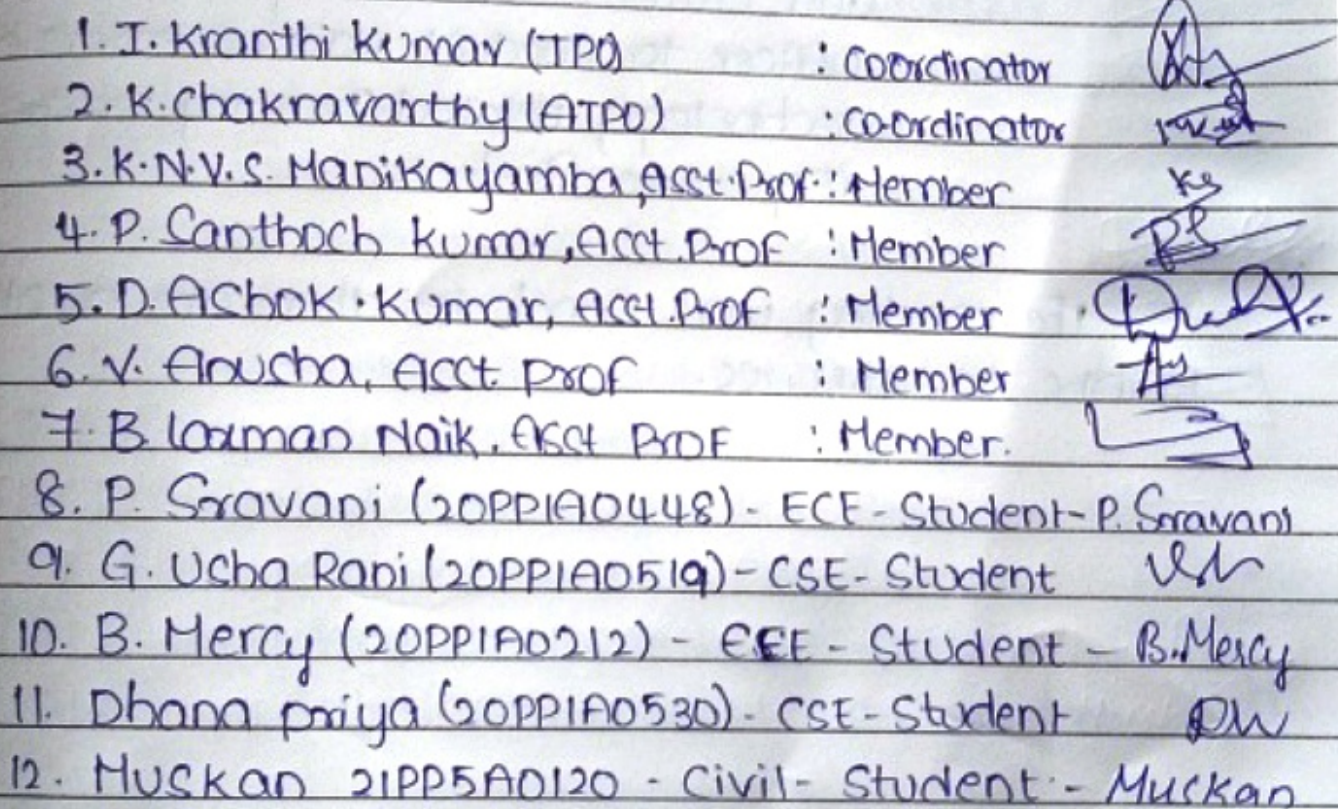 1. I. Kranthi Kumar (TPO) : Coordinator
2. K. Chakravarthy (ATPO) : Co-ordinator
3. K.N.V.S. Manikayamba, Asst. Prof. : Member Ks
4. P. Santhosh Kumar, Asst. Prof : Member
5. D. Ashok. Kumar, Asst. Prof : Member
6. V. Anusha, Asst. Prof : Member
7. B Laxman Naik, Asst Prof : Member.
8. P. Sravani (20PP1A0448) - ECE - Student - P. Sravani
9. G. Usha Rani (20PP1A0519) - CSE - Student
10. B. Mercy (20PP1A0212) - EEE - Student - B. Mercy
11. Dhana priya (20PP1A0530) - CSE - Student
12. Muskan 21PP5A0120 - Civil - Student - Muskan